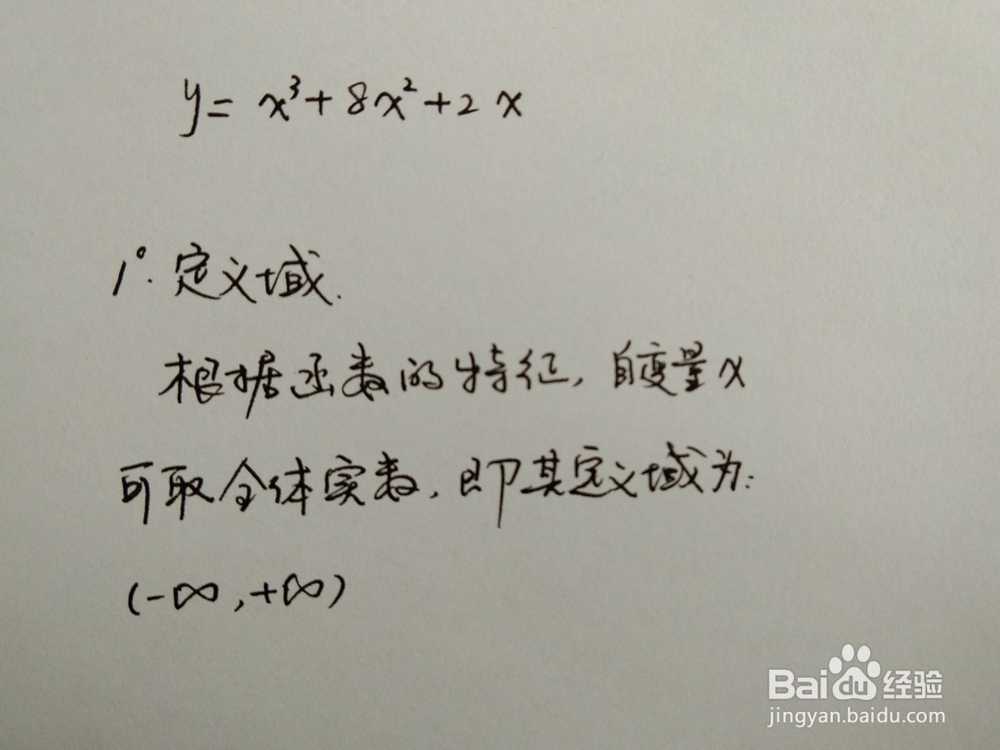 y=x³+8x²+2x
1°.定义域.
根据函数的特征,自变量x
可取全体实数,即其定义域为:
(-∞,+∞)
Baidu经验
jingyan.baidu.com